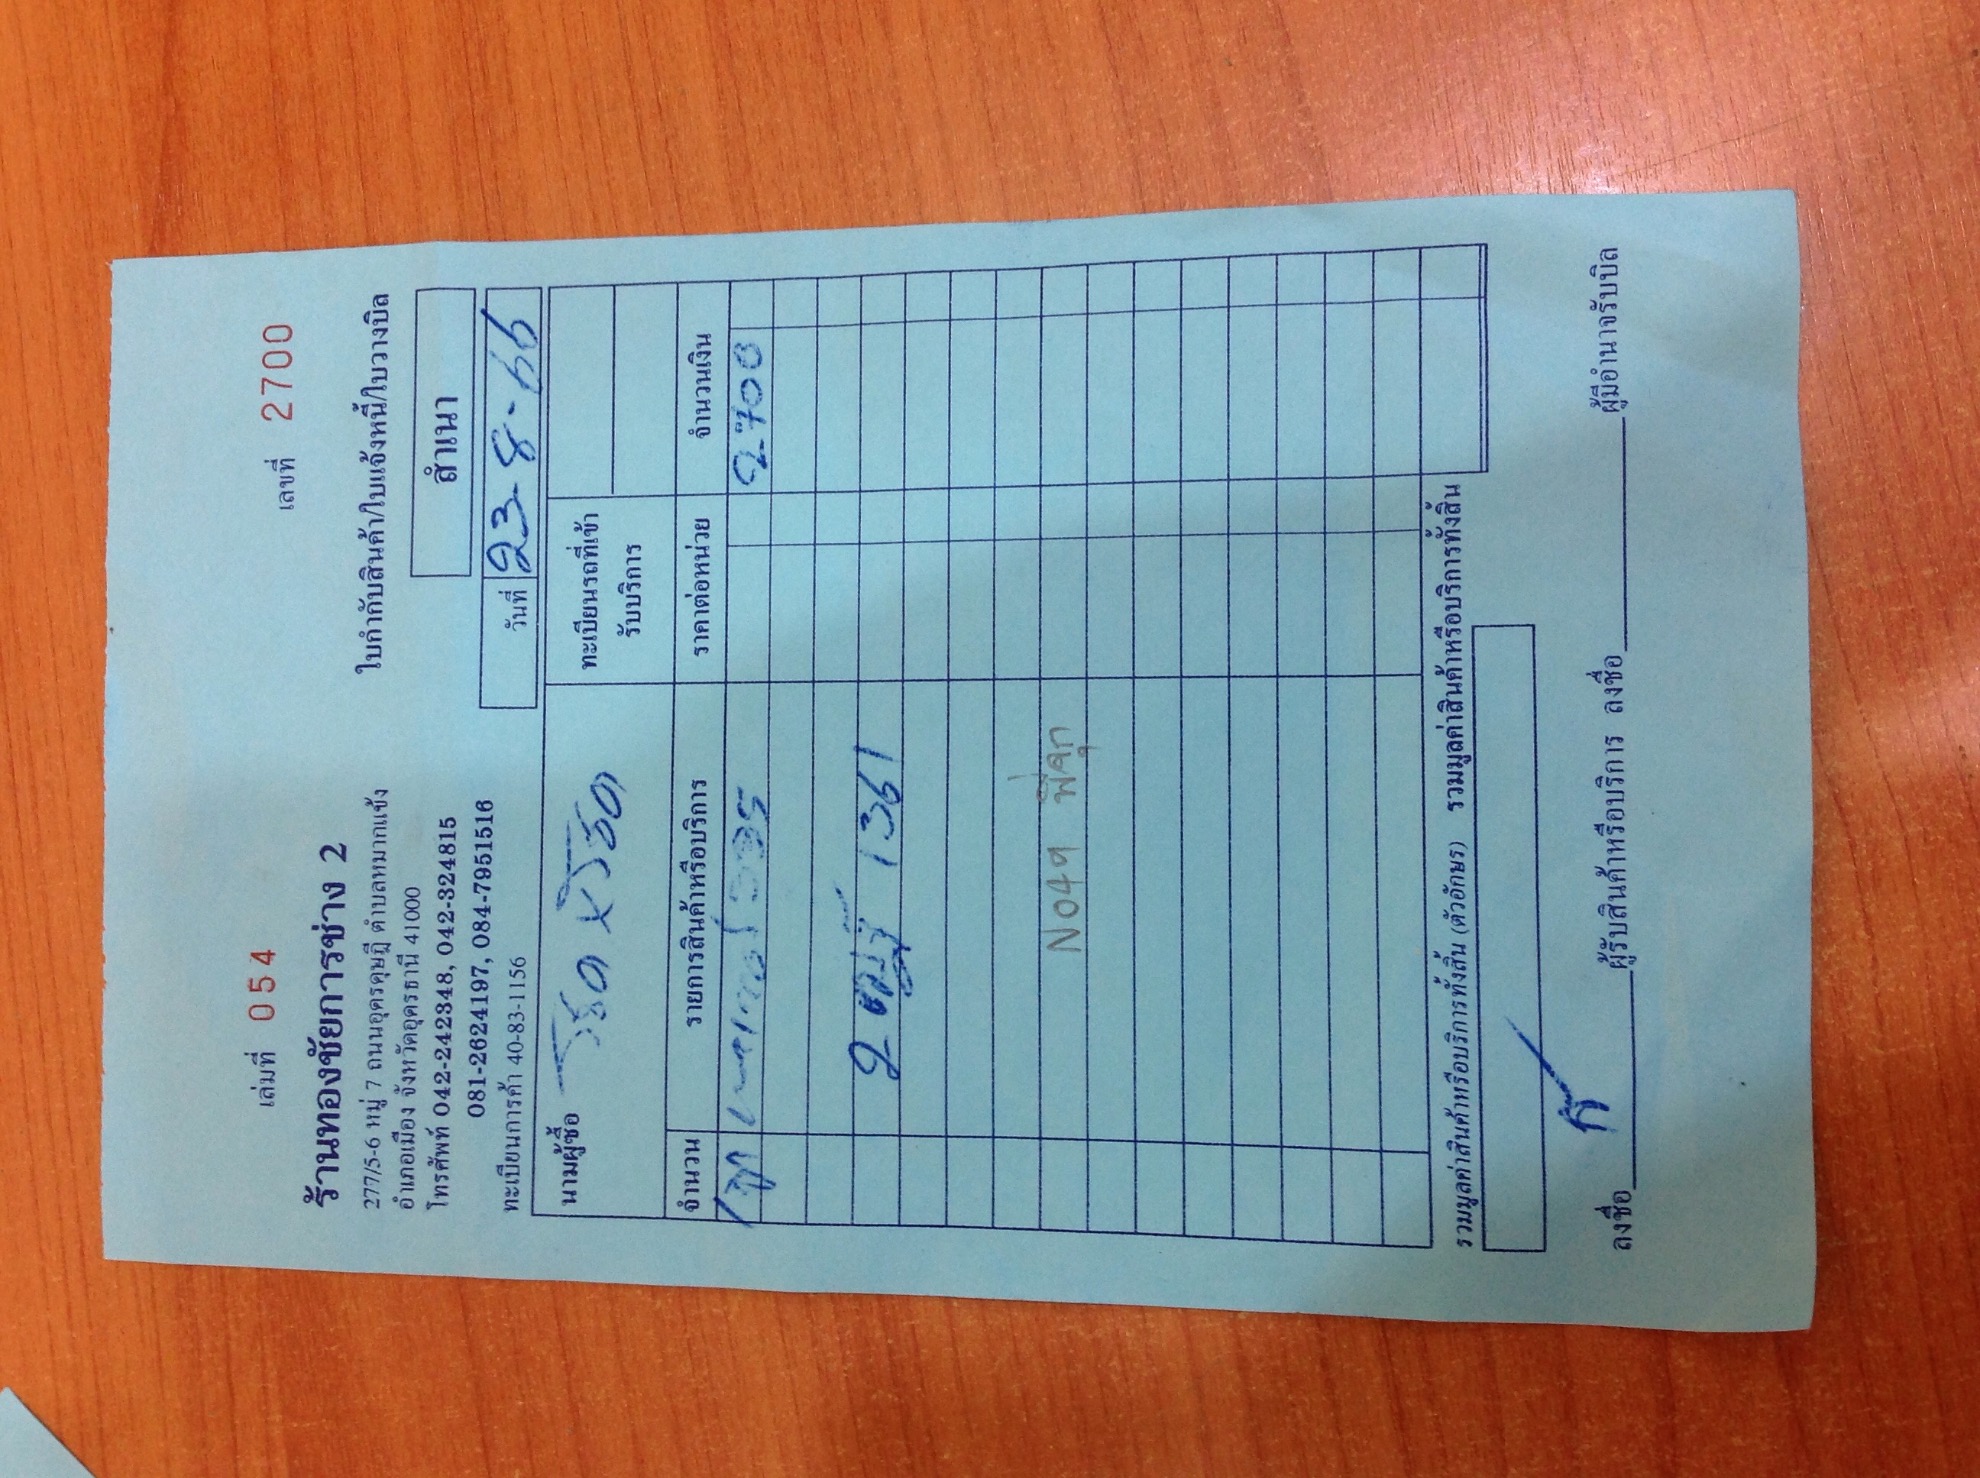 เล่มที่ 054 เลขที่ 2700
ร้านทองชัยการช่าง 2
277/5-6 หมู่ 7 ถนนอุดรดุษฎี ตำบลหมากแข้ง
อำเภอเมือง จังหวัดอุดรธานี 41000
โทรศัพท์ 042-242348, 042-324815
081-2624197, 084-7951516
ทะเบียนการค้า 40-83-1156
ใบกำกับสินค้า/ใบแจ้งหนี้/ใบวางบิล
สำเนา
วันที่ 23-8-66
นามผู้ซื้อ
ทะเบียนรถที่เข้า
รับบริการ
จำนวน รายการสินค้าหรือบริการ ราคาต่อหน่วย จำนวนเงิน
2700
1361
NO49
รวมมูลค่าสินค้าหรือบริการทั้งสิ้น (ตัวอักษร) รวมมูลค่าสินค้าหรือบริการทั้งสิ้น
ลงชื่อ ผู้รับสินค้าหรือบริการ ลงชื่อ ผู้มีอำนาจรับบิล